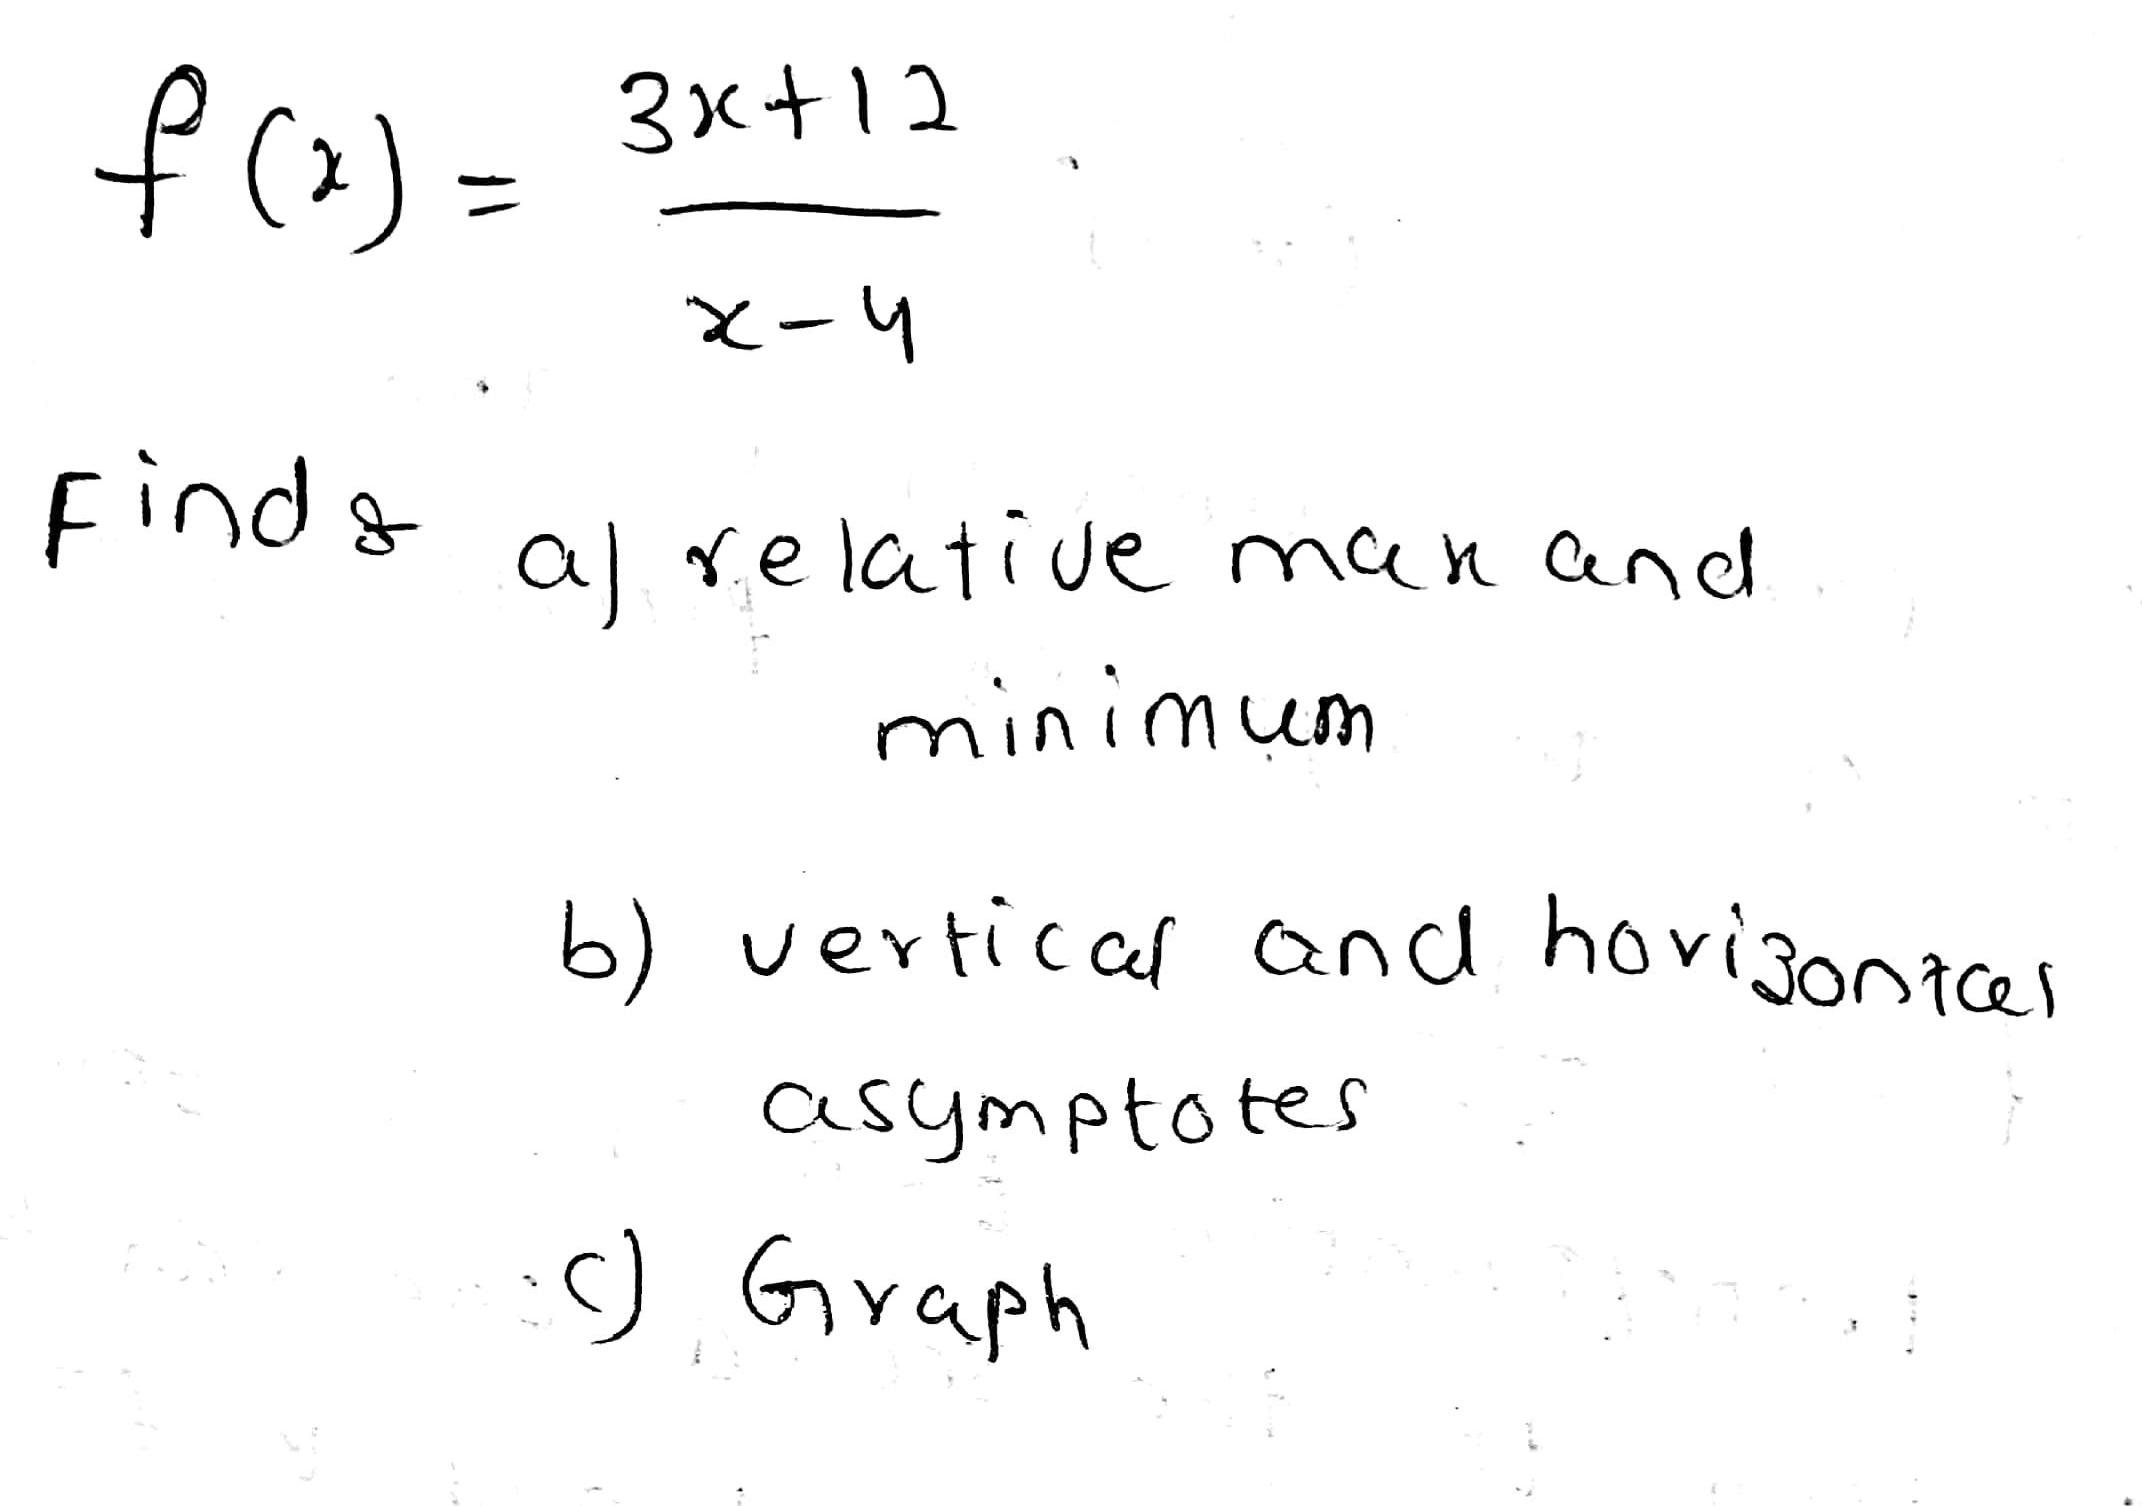 f(x) = 3x+12
x-4
Find: a) relative max and
minimum
b) vertical and horizontal
asymptotes
c) Graph